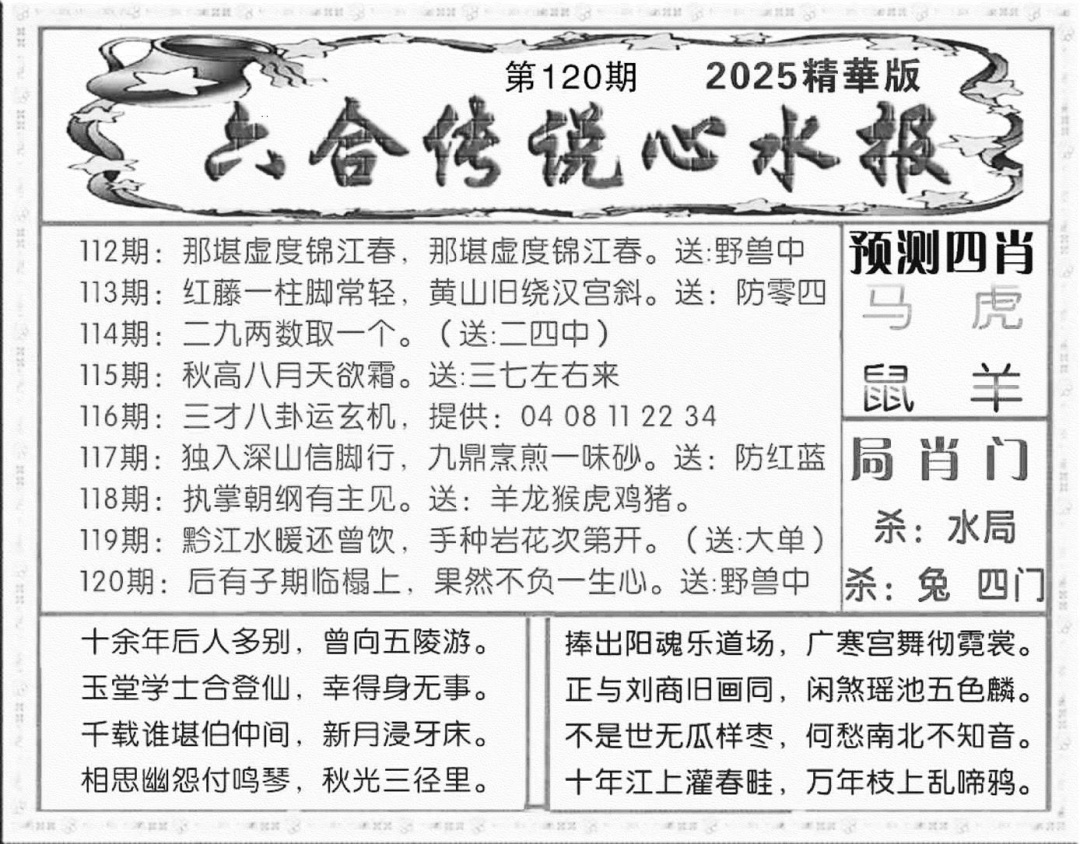 第120期 2025精華版
六合传说心水报
112期：那堪虚度锦江春，那堪虚度锦江春。送:野兽中
113期：红藤一柱脚常轻，黄山旧绕汉宫斜。送：防零四
114期：二九两数取一个。（送:二四中）
115期：秋高八月天欲霜。送:三七左右来
116期：三才八卦运玄机，提供：04 08 11 22 34
117期：独入深山信脚行，九鼎烹煎一味砂。送：防红蓝
118期：执掌朝纲有主见。送：羊龙猴虎鸡猪。
119期：黔江水暖还曾饮，手种岩花次第开。（送:大单）
120期：后有子期临榻上，果然不负一生心。送:野兽中
预测四肖
马 虎
鼠 羊
局肖门
杀：水局
杀：兔 四门
十余年后人多别，曾向五陵游。
玉堂学士合登仙，幸得身无事。
千载谁堪伯仲间，新月浸牙床。
相思幽怨付鸣琴，秋光三径里。
捧出阳魂乐道场，广寒宫舞彻霓裳。
正与刘商旧画同，闲煞瑶池五色麟。
不是世无瓜样枣，何愁南北不知音。
十年江上灌春畦，万年枝上乱啼鸦。